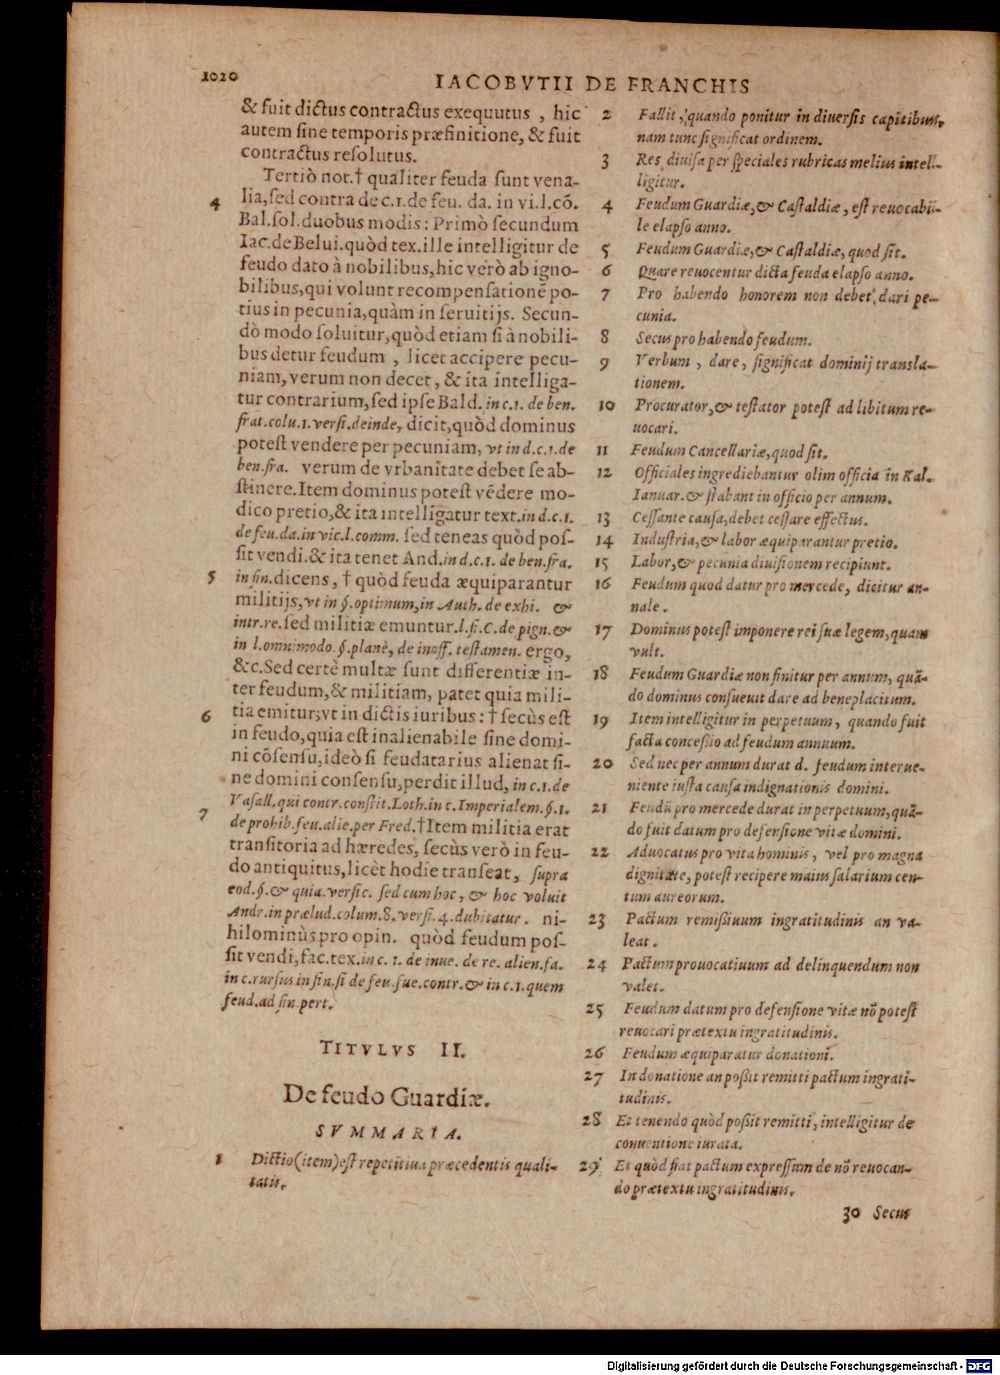 1020
IACOBVTII DE FRANCHIS
& fuit dictus contractus exequutus , hic
autem sine temporis præfinitione, & fuit
contractus resolutus.
Tertiò not.† qualiter feuda sunt vena-
4 lia, sed contra de c.1. de feu. da. in vi. l. cō.
Bal. sol. duobus modis: Primò secundum
Iac. de Belui. quòd tex. ille intelligitur de
feudo dato à nobilibus, hic verò ab igno-
bilibus, qui volunt recompensationē po-
tius in pecunia, quàm in seruitijs. Secun-
dò modo soluitur, quòd etiam si à nobili-
bus detur feudum , licet accipere pecu-
niam, verum non decet, & ita intelliga-
tur contrarium, sed ipse Bald. in c.1. de ben.
frat. colu.1. versi. deinde, dicit, quòd dominus
potest vendere per pecuniam, vt in d.c.1. de
ben. fra. verum de vrbanitate debet se ab-
stinere. Item dominus potest vēdere mo-
dico pretio, & ita intelligatur text. in d.c.1.
de feu. da. in vic. l. comm. sed teneas quòd pos-
sit vendi. & ita tenet And. in d.c.1. de ben. fra.
5 in fin. dicens, † quòd feuda æquiparantur
militijs, vt in §. optimum, in Auth. de exhi. &
intr. re. sed militiæ emuntur. l. fi. C. de pign. &
in l. omnimodo. §. planè, de inoff. testamen. ergo,
&c. Sed certè multæ sunt differentiæ in-
ter feudum, & militiam, patet quia mili-
6 tia emitur, vt in dictis iuribus: † secùs est
in feudo, quia est inalienabile sine domi-
ni cōsensu, ideò si feudatarius alienat si-
ne domini consensu, perdit illud, in c.1. de
Vasall. qui contr. constit. Loth. in c. Imperialem. §.1.
7 de prohib. feu. alie. per Fred. † Item militia erat
transitoria ad hæredes, secùs verò in feu-
do antiquitus, licèt hodie transeat, supra
eod. §. & quia. versic. sed cum hoc, & hoc voluit
Andr. in prælud. colum. 8. versi. 4. dubitatur. ni-
hilominùs pro opin. quòd feudum pos-
sit vendi, fac. tex. in c. 1. de inue. de re. alien. fa.
in c. rursus in fin. si de feu. fue. contr. & in c.1. quem
feud. ad fin. pert.
TITVLVS II.
De feudo Guardiæ.
SVMMARIA.
1 Dictio (item) est repetitiua præcedentis quali-
tatis.
2 Fallit, quando ponitur in diuersis capitibus,
nam tunc significat ordinem.
3 Res diuisa per speciales rubricas melius intel-
ligitur.
4 Feudum Guardiæ, & Castaldiæ, est reuocabi-
le elapso anno.
5 Feudum Guardiæ, & Castaldiæ, quod sit.
6 Quare reuocentur dicta feuda elapso anno.
7 Pro habendo honorem non debet dari pe-
cunia.
8 Secus pro habendo feudum.
9 Verbum , dare, significat dominij transla-
tionem.
10 Procurator, & testator potest ad libitum re-
uocari.
11 Feudum Cancellariæ, quod sit.
12 Officiales ingrediebantur olim officia in Kal.
Ianuar. & stabant in officio per annum.
13 Cessante causa, debet cessare effectus.
14 Industria, & labor æquiparantur pretio.
15 Labor, & pecunia diuisionem recipiunt.
16 Feudum quod datur pro mercede, dicitur an-
nale .
17 Dominus potest imponere rei suæ legem, quam
vult.
18 Feudum Guardiæ non finitur per annum, quā-
do dominus consueuit dare ad beneplacitum.
19 Item intelligitur in perpetuum, quando fuit
facta concessio ad feudum annuum.
20 Sed nec per annum durat d. feudum interue-
niente iusta causa indignationis domini.
21 Feudū pro mercede durat in perpetuum, quā-
do fuit datum pro defensione vitæ domini.
22 Aduocatus pro vita hominis, vel pro magna
dignitate, potest recipere maius salarium cen-
tum aureorum.
23 Pactum remissiuum ingratitudinis an va-
leat .
24 Pactum prouocatiuum ad delinquendum non
valet.
25 Feudum datum pro defensione vitæ nō potest
reuocari prætextu ingratitudinis.
26 Feudum æquiparatur donationi.
27 In donatione an possit remitti pactum ingrati-
tudinis.
28 Et tenendo quòd possit remitti, intelligitur de
conuentione iurata.
29 Et quòd fiat pactum expressum de nō reuocan-
do prætextu ingratitudinis.
30 Secus
Digitalisierung gefördert durch die Deutsche Forschungsgemeinschaft - DFG